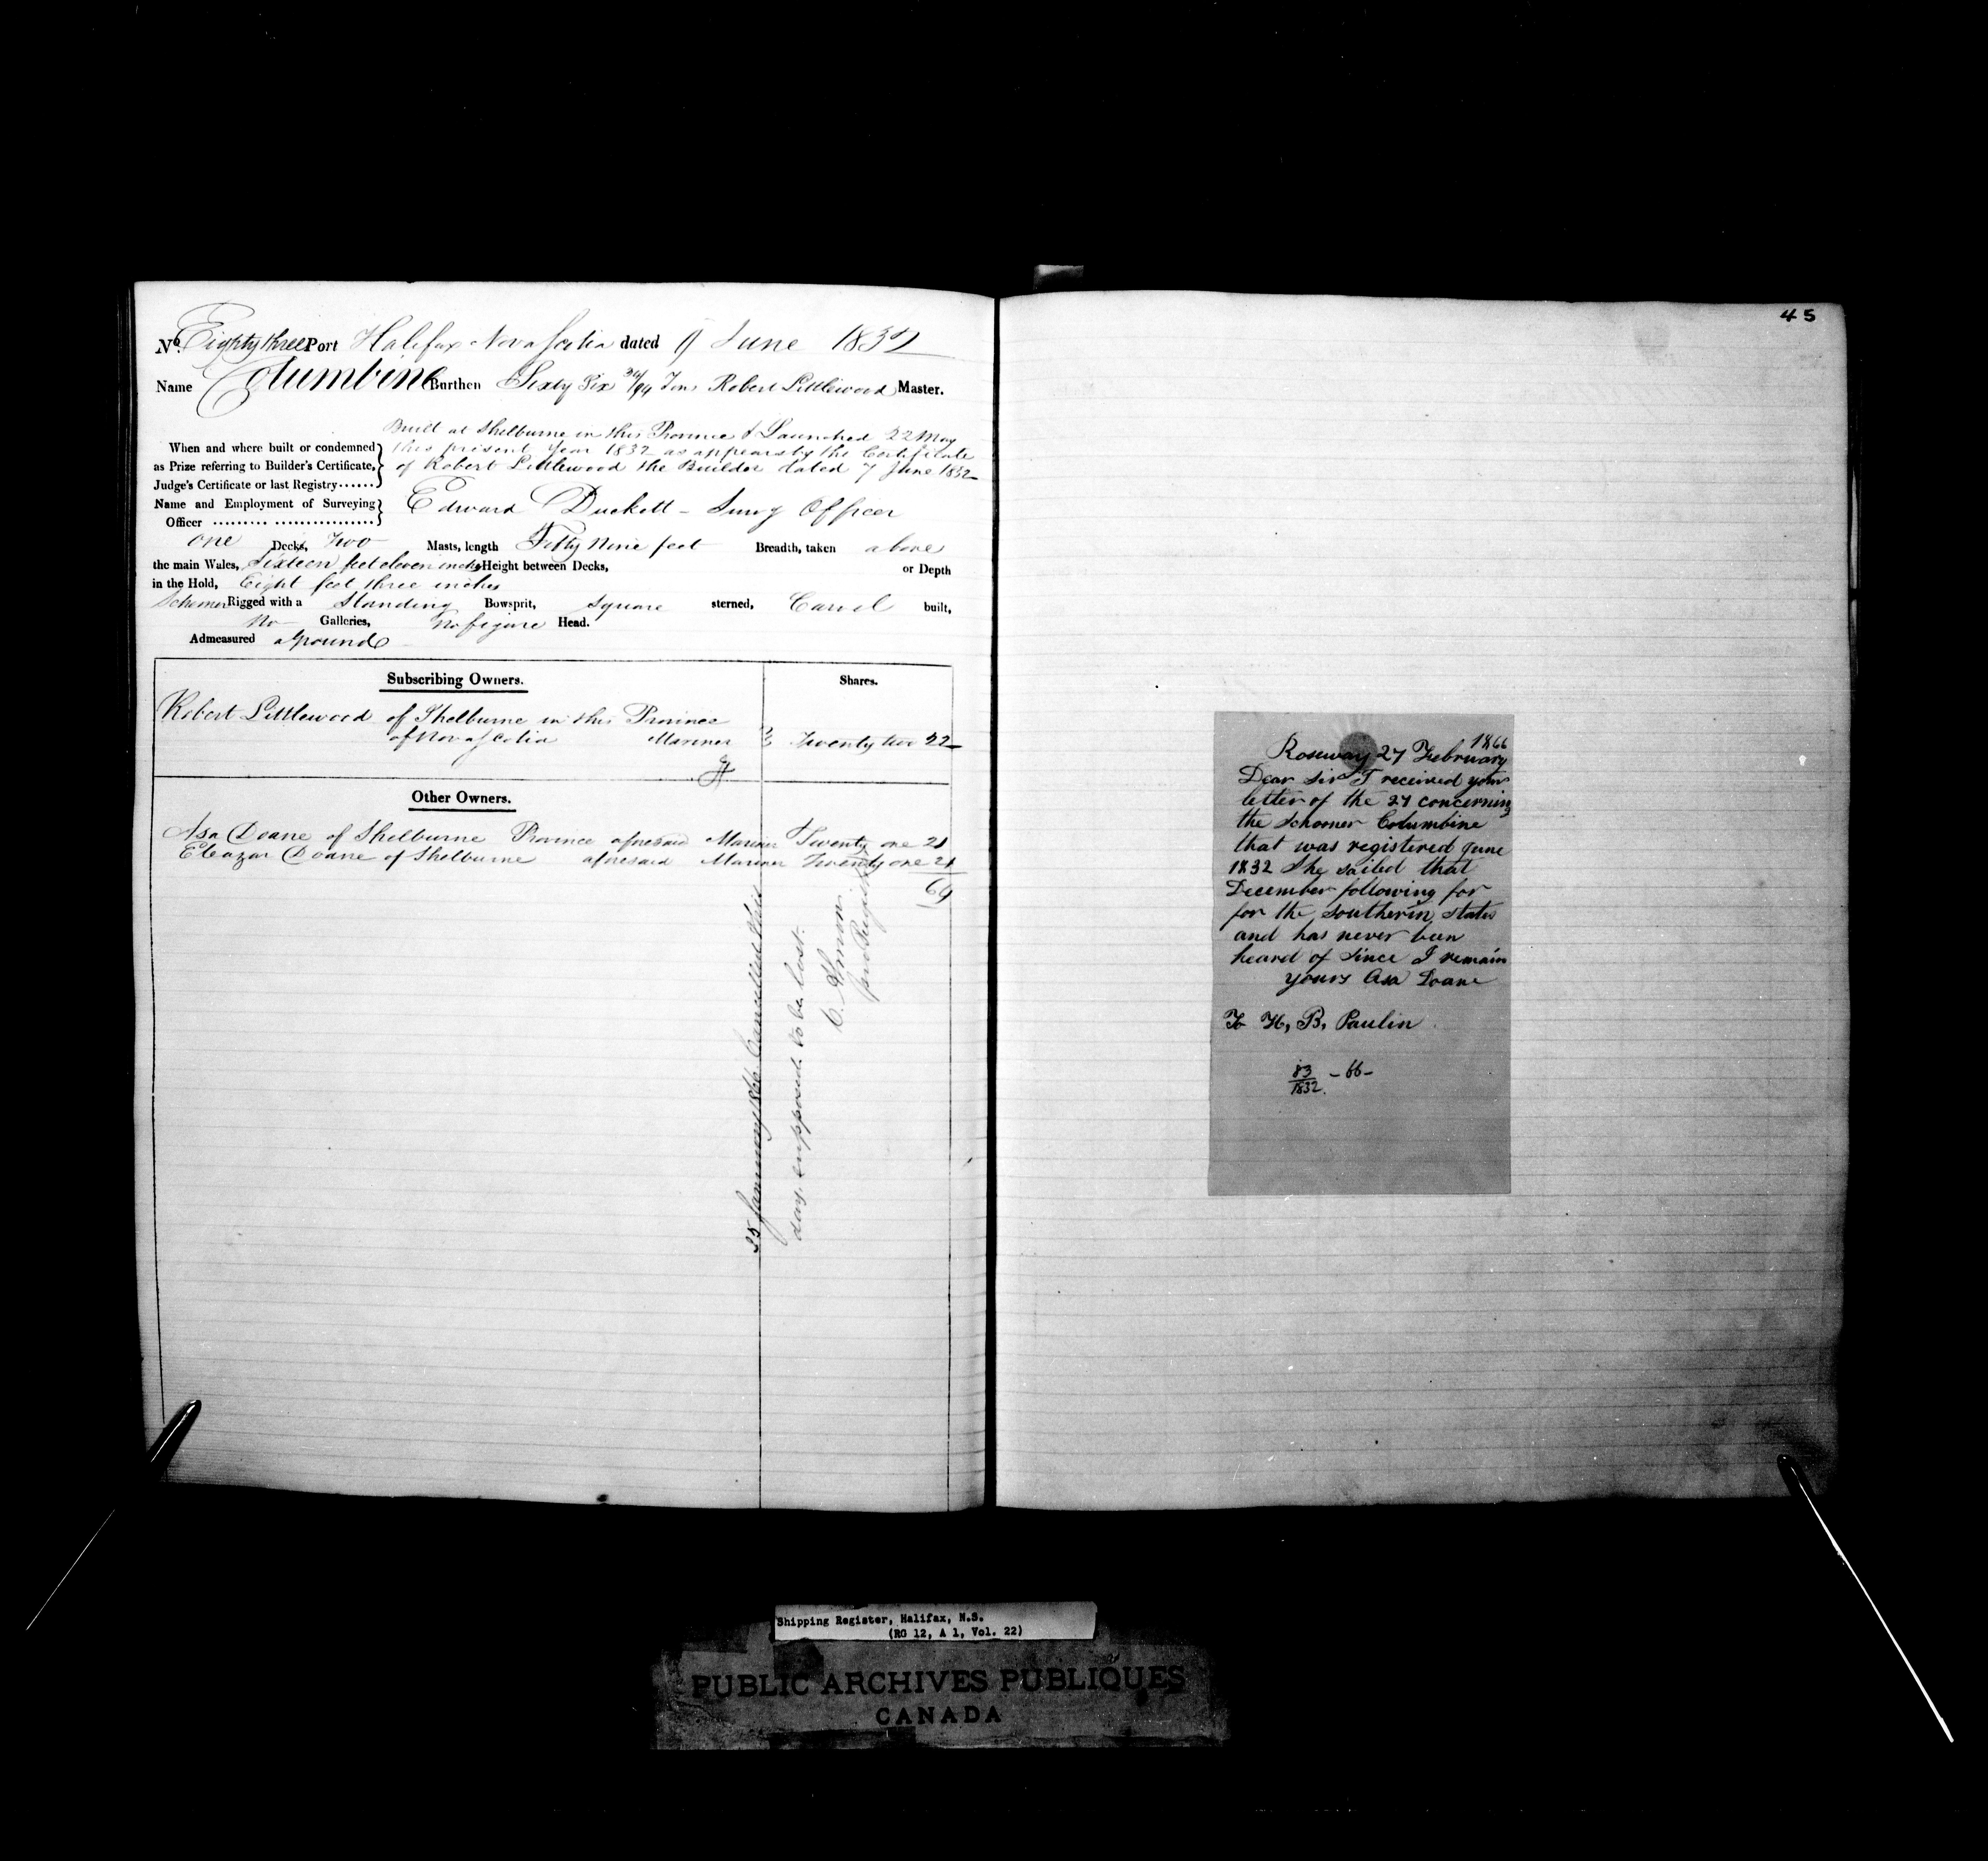 No. Eighty three Port Halifax Nova Scotia dated 9 June 1832
Name Columbine Burthen Sixty Six 34/94 Tons Robert Littlewood Master.
Built at Shelburne in this Province & Launched 22 May
When and where built or condemned this present Year 1832 as appears by the Certificate
as Prize referring to Builder's Certificate, of Robert Littlewood the Builder dated 7 June 1832
Judge's Certificate or last Registry......
Name and Employment of Surveying Edward Duckett - Surv'g Officer
Officer ......... ................
one Decks, two Masts, length Fifty Nine feet Breadth, taken above
the main Wales, Sixteen feet eleven inches Height between Decks, or Depth
in the Hold, Eight feet three inches
Schooner Rigged with a Standing Bowsprit, Square sterned, Carvel built,
No Galleries, No figure Head.
Admeasured aground
Subscribing Owners. Shares.
Robert Littlewood of Shelburne in this Province
of Nova Scotia Mariner Twenty two 22
Other Owners.
Asa Doane of Shelburne Province aforesaid Mariner Twenty one 21
Eleazar Doane of Shelburne aforesaid Mariner Twenty one 21
64
25 January 1866 Cancelled this
day. supposed to be lost.
pro Registrar
45
1866
Roseway 27 February
Dear Sir I received your
letter of the 24 concerning
the schooner Columbine
that was registered June
1832 She sailed that
December following for
for the southerin states
and has never been
heard of since I remain
yours Asa Doane
To H, B, Paulin
83 - 66 -
1832.
Shipping Register, Halifax, N.S.
(RG 12, A 1, Vol. 22)
PUBLIC ARCHIVES PUBLIQUES
CANADA